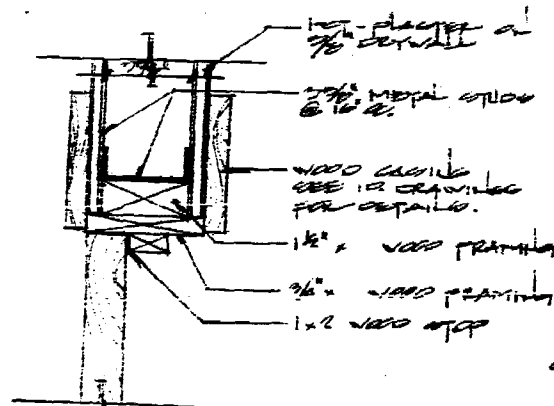 PLASTER ON
5/8" DRYWALL
METAL STUDS
@ 16" O.C.
WOOD CASING
SEE ID DRAWINGS
FOR DETAILS.
1 1/2" x WOOD FRAMING
3/4" x WOOD FRAMING
1x2 WOOD STOP